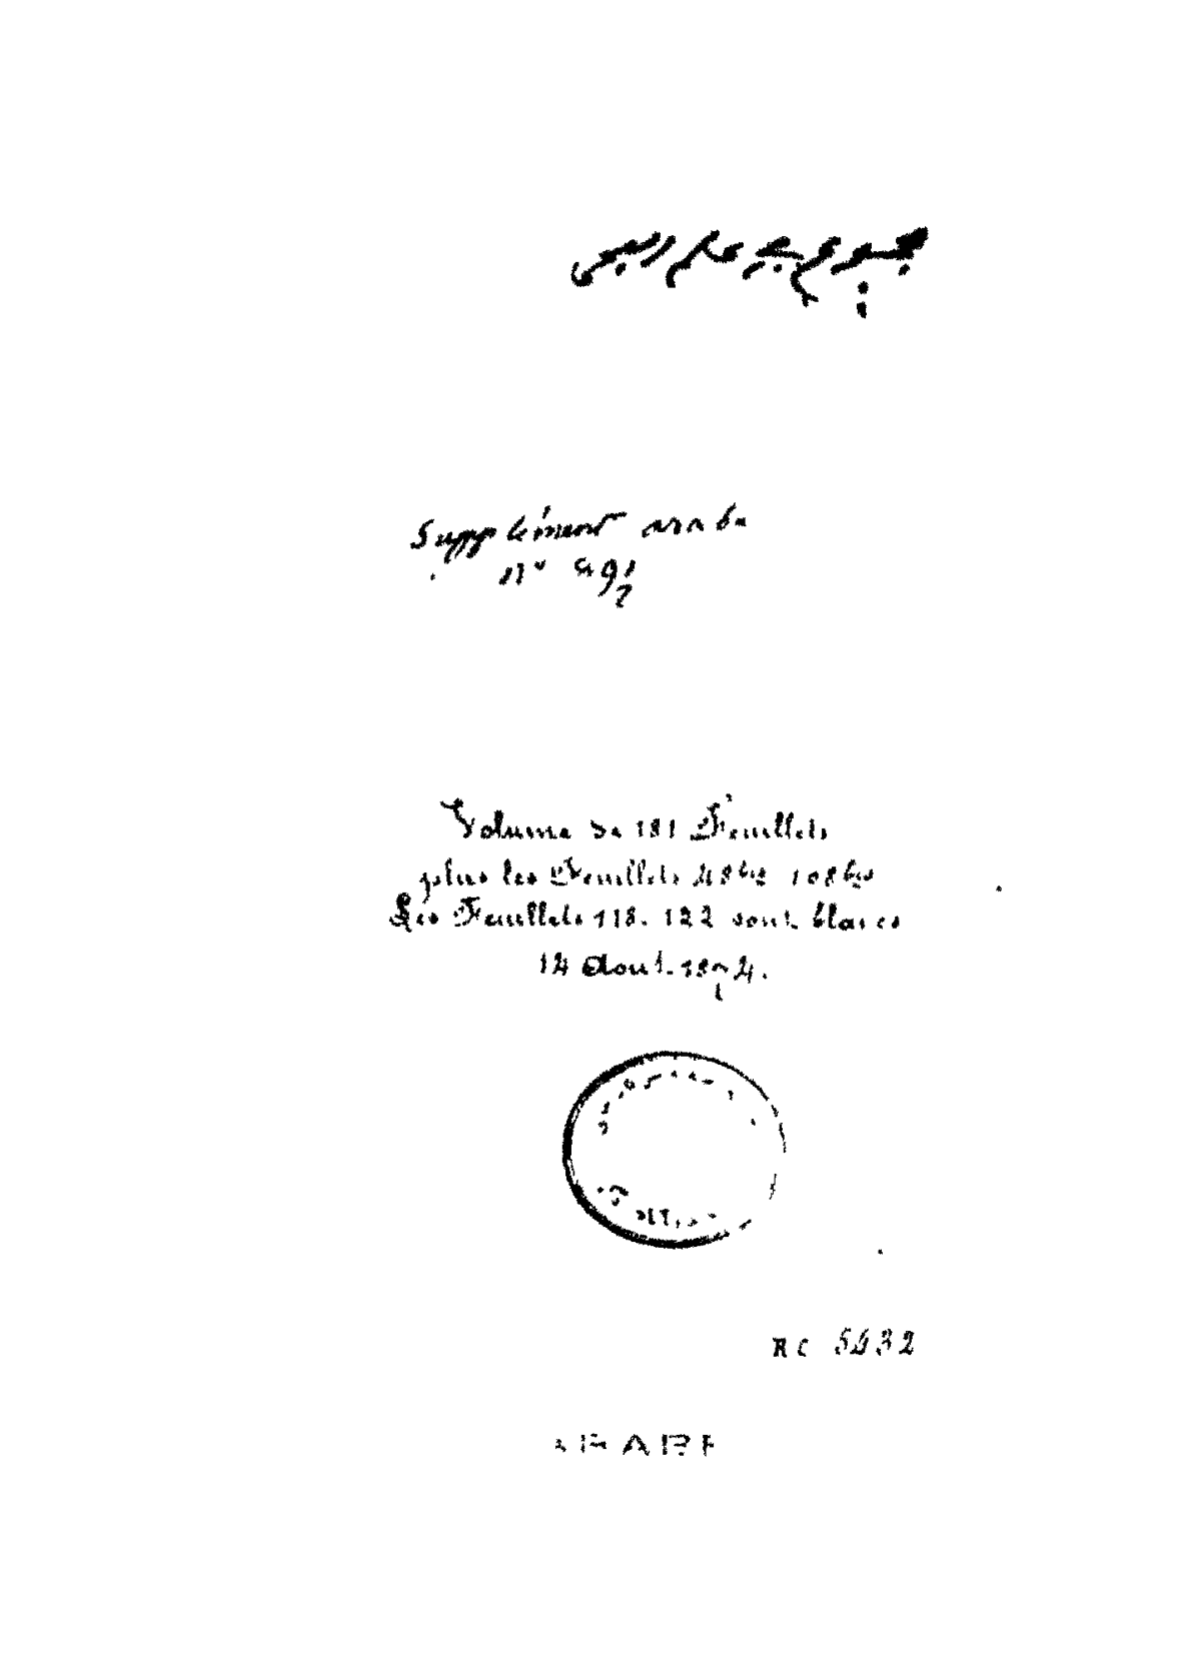 مجموع في علم
Supplément arabe
n°
Volume de 181 Feuillets
plus les Feuillets 48bis 108bis
Les Feuillets 118. 122 sont blancs
14 Aout. 1874.
RC 5432